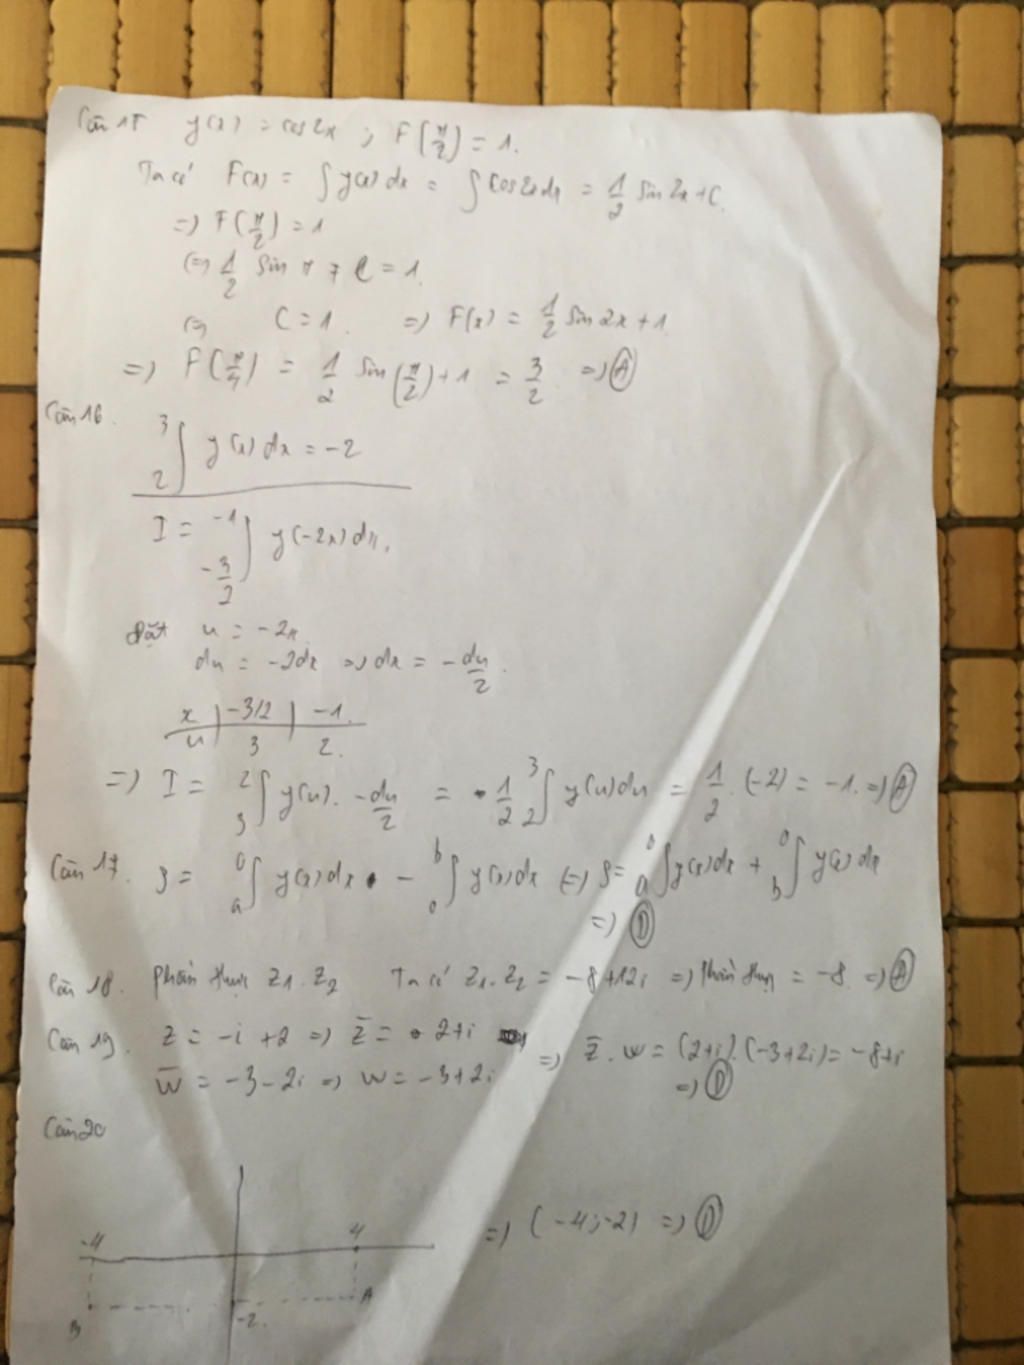 Câu 15 y(x) = cos2x ; F(π/2) = 1.
Ta có F(x) = ∫ y(x) dx = ∫ cos2x dx = 1/2 sin 2x + C.
=) F(π/2) = 1
(=) 1/2 sin π + C = 1.
(=) C = 1. =) F(x) = 1/2 sin 2x + 1.
=) F(π/4) = 1/2 sin(π/2) + 1 = 3/2 =) A
Câu 16.
3
∫ y(x) dx = -2
2
I = -1 ∫ -3/2 y(-2x) dx.
Đặt u = -2x.
du = -2dx =) dx = -du/2.
x | -3/2 | -1.
u | 3 | 2.
=) I = 2 ∫ 3 y(u). -du/2 = 1/2 3 ∫ 2 y(u) du = 1/2 . (-2) = -1. =) A
Câu 17. S = 0 ∫ a y(x) dx - b ∫ 0 y(x) dx (=) S = 0 ∫ a y(x) dx + 0 ∫ b y(x) dx
=) D
Câu 18. phần thực z1. z2 Ta có z1. z2 = -8 + 12i =) phần thực = -8 =) A
Câu 19. z = -i + 2 =) z̄ = 2+i =) z̄ . w = (2+i).(-3+2i) = -8+i
w̄ = -3 - 2i =) w = -3 + 2i =) D
Câu 20
-4 4 =) (-4;-2) =) D
B -2. A